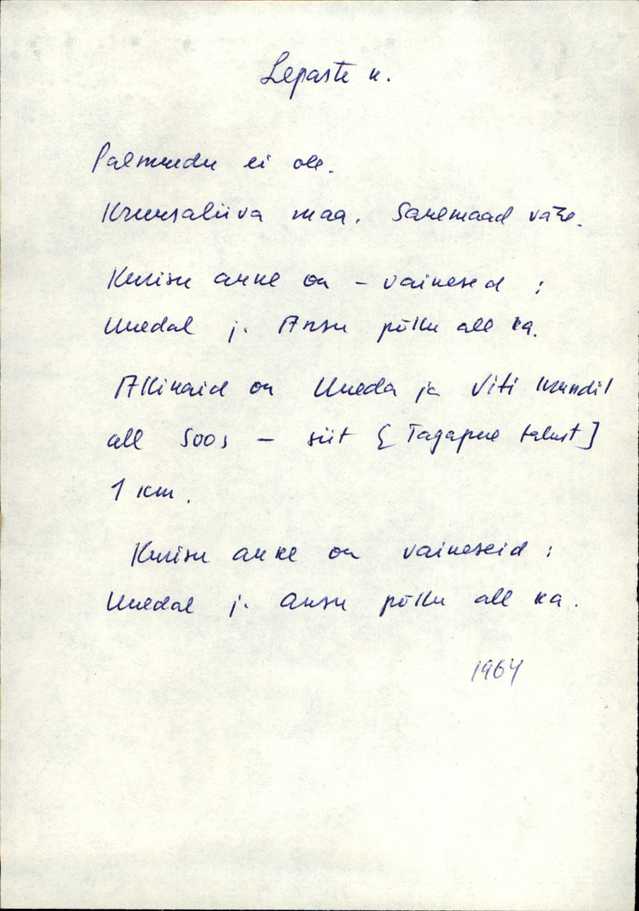 Lepaste k.
Palmundu ei ole.
Kruusaliiva maa. Savemaad vähe.
Kurisu auke on - vaineseid :
Uuedal j. Ansu põllu all ka.
Allikaid on Uueda ja Viti krundil
all Soos - siit [Tagapere talust]
1 km.
Kurisu auke on vaineseid :
Uuedal j. Ansu põllu all ka.
1964